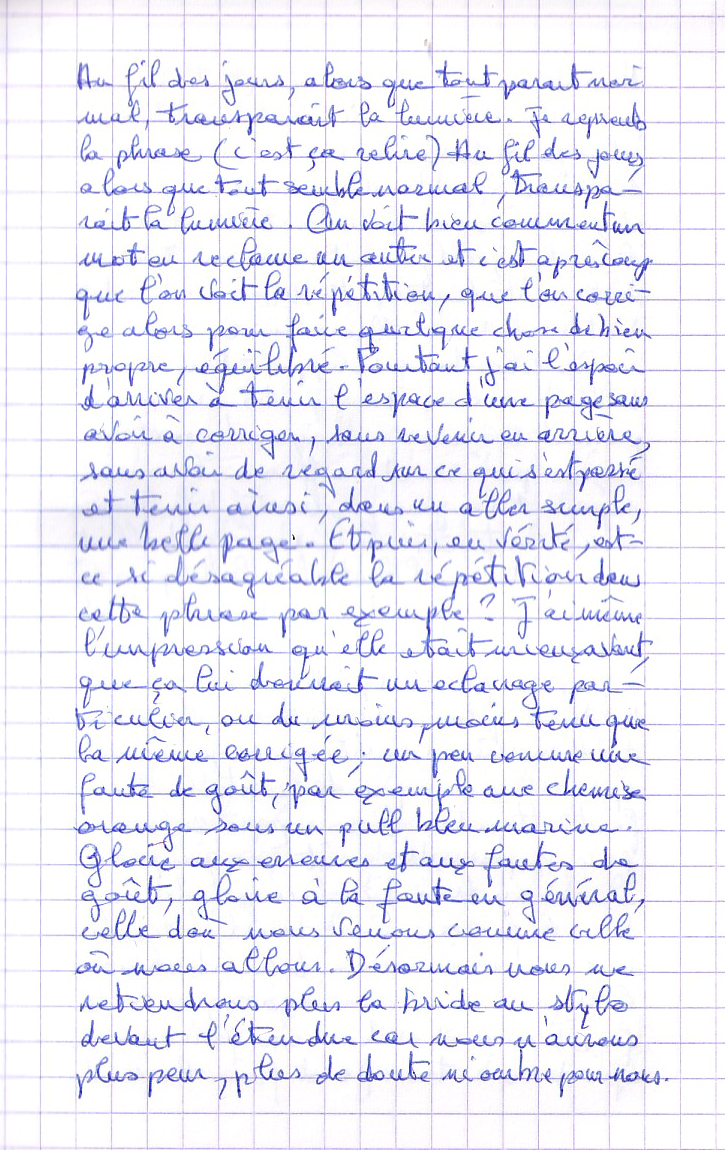 Au fil des jours, alors que tout parait nor
mal, transparaît la lumière. Je reprends
la phrase (c'est ça relire) Au fil des jours,
alors que tout semble normal, transpa-
rait la lumière. On voit bien comment un
mot en reclame un autre et c'est après coup
que l'on voit la répétition, que l'on corri-
ge alors pour faire quelque chose de bien
propre, équilibré. Pourtant j'ai l'espoir
d'arriver à tenir l'espace d'une page sans
avoir à corriger, sans revenir en arrière,
sans avoir de regard sur ce qui s'est passé
et tenir ainsi, dans un aller simple,
une belle page. Et puis, en vérité, est-
ce si désagréable la répétition dans
cette phrase par exemple ? J'ai même
l'impression qu'elle etait mieux avant,
que ça lui donnait un eclairage par-
ticulier, ou du moins, moins tenu que
la même corrigée, un peu comme une
faute de goût, par exemple une chemise
orange sous un pull bleu marine.
Gloire aux erreurs et aux fautes de
goût, gloire à la faute en général,
celle doù nous venons comme celle
où nous allons. Désormais nous ne
retiendrons plus la bride au stylo
devant l'étendue car nous n'aurons
plus peur, plus de doute ni ombre pour nous.